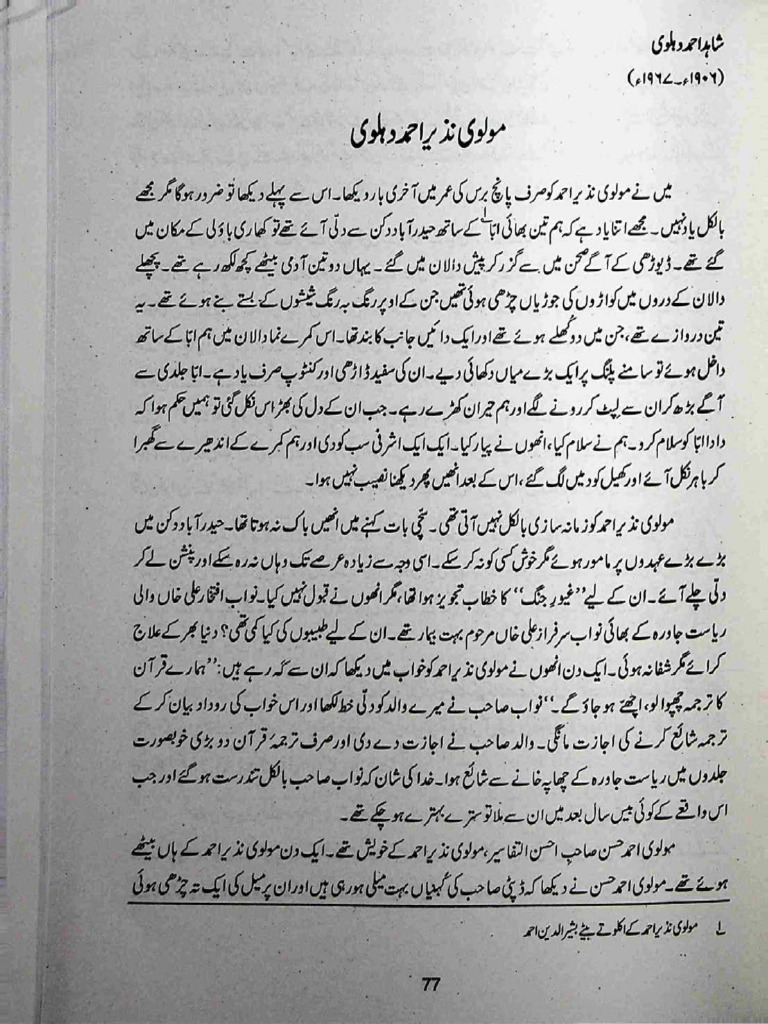 شاہد احمد دہلوی
(۱۹۰۶ء۔۱۹۶۷ء)
مولوی نذیر احمد دہلوی
میں نے مولوی نذیر احمد کو صرف پانچ برس کی عمر میں آخری بار دیکھا۔ اس سے پہلے دیکھا تو ضرور ہوگا مگر مجھے
بالکل یاد نہیں۔ مجھے اتنا یاد ہے کہ ہم تین بھائی ابّا۱؎ کے ساتھ حیدرآباد دکن سے دلّی آئے تھے تو کھاری باؤلی کے مکان میں
گئے تھے۔ ڈیوڑھی کے آگے صحن میں سے گزر کر پیش دالان میں گئے۔ یہاں دو تین آدمی بیٹھے کچھ لکھ رہے تھے۔ پچھلے
دالان کے دروں میں کواڑوں کی جوڑیاں چڑھی ہوئی تھیں جن کے اوپر رنگ بہ رنگ شیشوں کے بستے بنے ہوئے تھے۔ یہ
تین دروازے تھے، جن میں دو کُھلے ہوئے تھے اور ایک دائیں جانب کا بند تھا۔ اس کمرے نما دالان میں ہم ابّا کے ساتھ
داخل ہوئے تو سامنے پلنگ پر ایک بڑے میاں دکھائی دیے۔ ان کی سفید ڈاڑھی اور کنٹوپ صرف یاد ہے۔ ابّا جلدی سے
آگے بڑھ کر ان سے لپٹ کر رونے لگے اور ہم حیران کھڑے رہے۔ جب ان کے دل کی بھڑاس نکل گئی تو ہمیں حکم ہوا کہ
دادا ابّا کو سلام کرو۔ ہم نے سلام کیا، انھوں نے پیار کیا۔ ایک ایک اشرفی سب کو دی اور ہم کمرے کے اندھیرے سے گھبرا
کر باہر نکل آئے اور کھیل کود میں لگ گئے، اس کے بعد انھیں پھر دیکھنا نصیب نہیں ہوا۔
مولوی نذیر احمد کو زمانہ سازی بالکل نہیں آتی تھی۔ سچّی بات کہنے میں انھیں باک نہ ہوتا تھا۔ حیدرآباد دکن میں
بڑے بڑے عہدوں پر مامور ہوئے مگر خوش کسی کو نہ کر سکے۔ اسی وجہ سے زیادہ عرصے تک وہاں نہ رہ سکے اور پنشن لے کر
دلّی چلے آئے۔ ان کے لیے ’’غیور جنگ‘‘ کا خطاب تجویز ہوا تھا، مگر انھوں نے قبول نہیں کیا۔ نواب افتخار علی خاں والی
ریاست جاورہ کے بھائی نواب سرفراز علی خاں مرحوم بہت بیمار تھے۔ ان کے لیے طبیبوں کی کیا کمی تھی؟ دنیا بھر کے علاج
کرائے مگر شفا نہ ہوئی۔ ایک دن انھوں نے مولوی نذیر احمد کو خواب میں دیکھا کہ ان سے کہ رہے ہیں: ’’ہمارے قرآن
کا ترجمہ چھپوا لو، اچھّے ہو جاؤ گے۔‘‘ نواب صاحب نے میرے والد کو دلّی خط لکھا اور اس خواب کی روداد بیان کر کے
ترجمہ شائع کرنے کی اجازت مانگی۔ والد صاحب نے اجازت دے دی اور صرف ترجمۂ قرآن دو بڑی خوبصورت
جلدوں میں ریاست جاورہ کے چھاپہ خانے سے شائع ہوا۔ خدا کی شان کہ نواب صاحب بالکل تندرست ہو گئے اور جب
اس واقعے کے کوئی بیس سال بعد میں ان سے ملا تو سترے بہترے ہو چکے تھے۔
مولوی احمد حسن صاحبِ احسن التفاسیر، مولوی نذیر احمد کے خویش تھے۔ ایک دن مولوی نذیر احمد کے ہاں بیٹھے
ہوئے تھے۔ مولوی احمد حسن نے دیکھا کہ ڈپٹی صاحب کی کُہنیاں بہت میلی ہو رہی ہیں اور ان پر میل کی ایک تہ چڑھی ہوئی
۱؎ مولوی نذیر احمد کے اکلوتے بیٹے بشیر الدین احمد
77